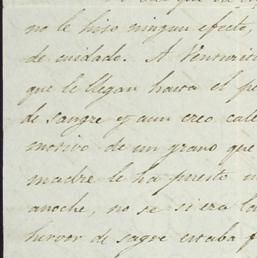 no le hizo ningun efecto,
de cuidado. A Ventura
que le llegan hasta el pe
de sangre y aun creo cale
motivo de un grano que
madre le ha puesto u
anoche, no se si era la
hurvor de sagre estaba